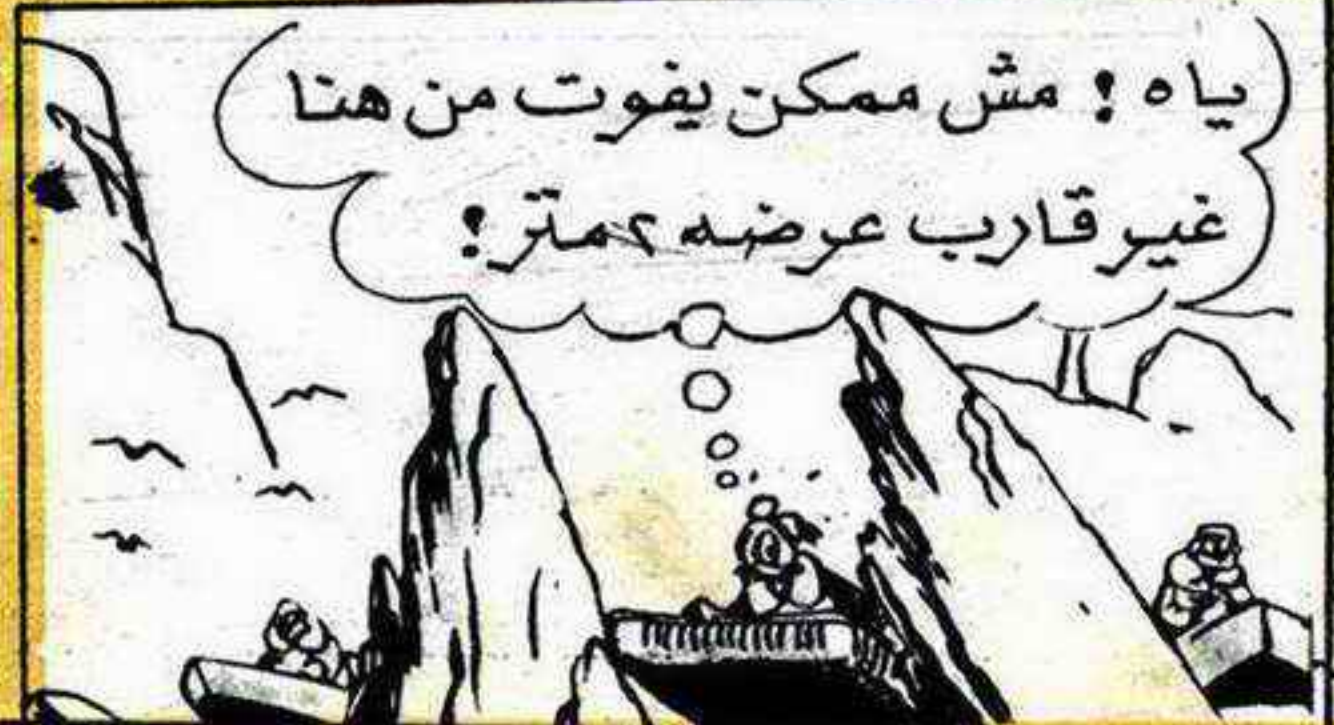 ياه ! مش ممكن يفوت من هنا
غير قارب عرضه ٢ متر !